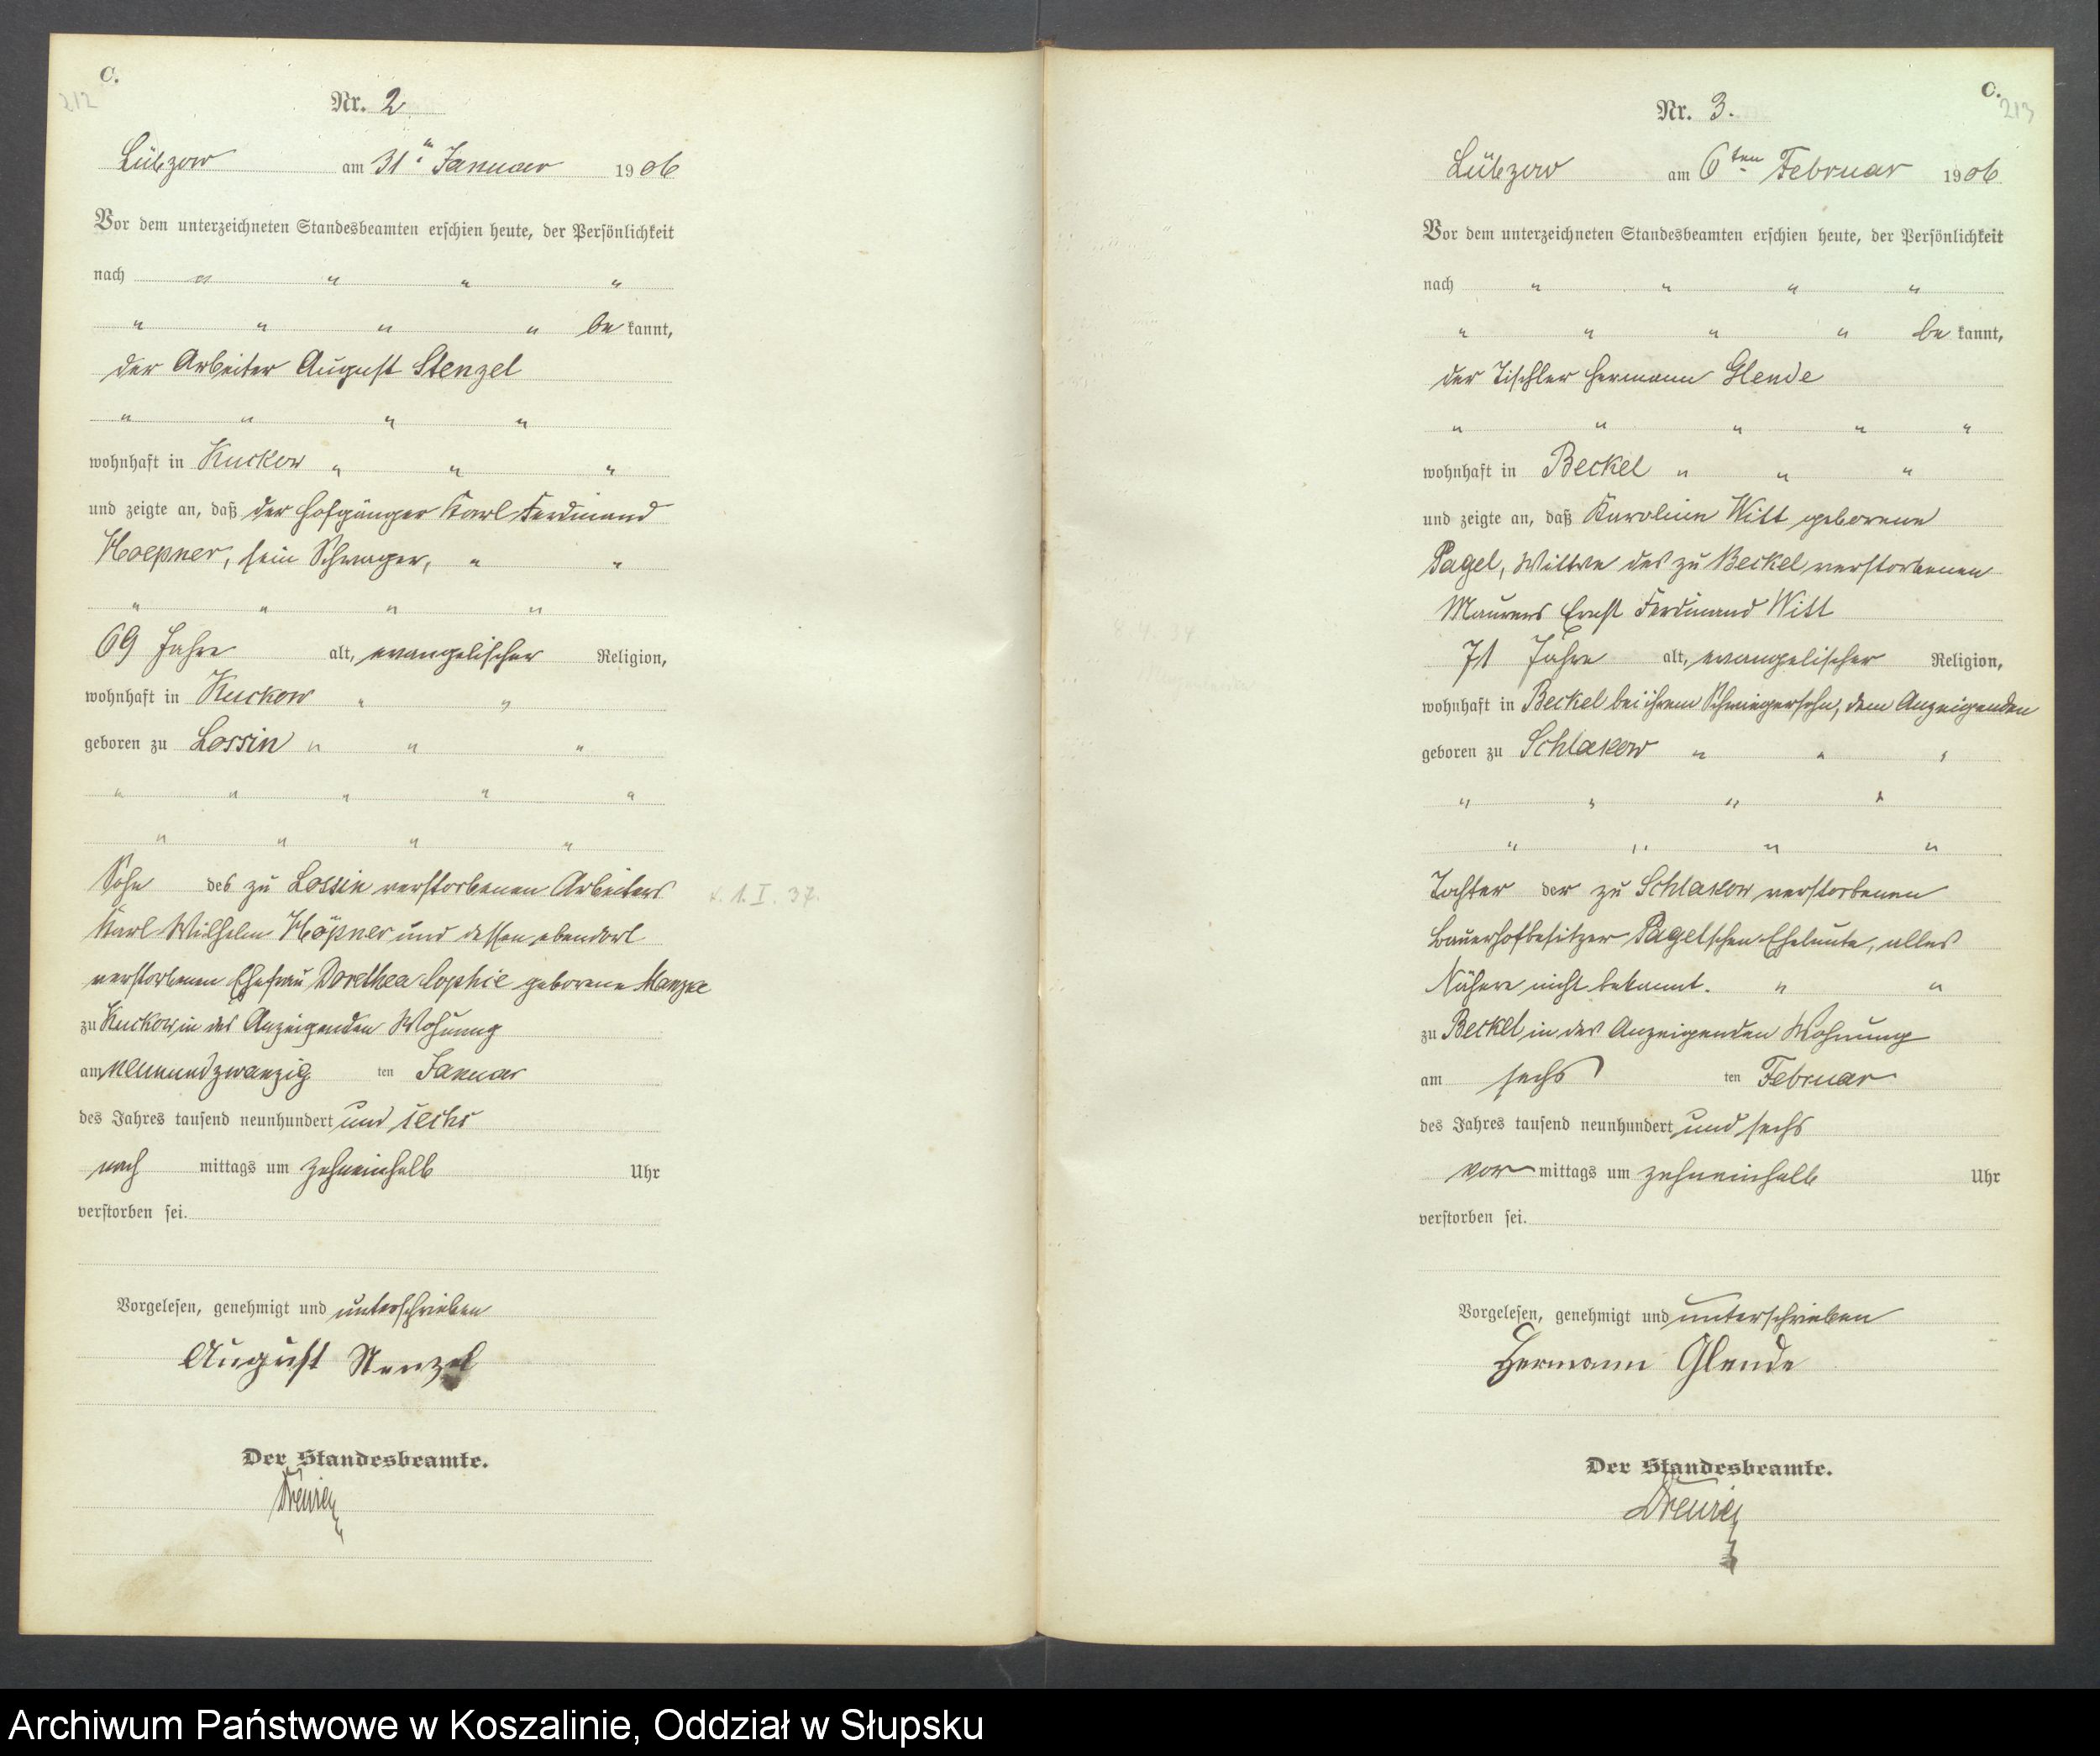 C.
212
Nr. 2
Lübzow am 31ten Januar 1906
Vor dem unterzeichneten Standesbeamten erschien heute, der Persönlichkeit
nach " " " "
" " " " be kannt,
der Arbeiter August Stenzel
" " " "
wohnhaft in Kuckow " " "
und zeigte an, daß der Hofgänger Karl Ferdinand
Hoepner, sein Schwager, " "
" " " "
69 Jahre alt, evangelischer Religion,
wohnhaft in Kuckow " "
geboren zu Lossin " " "
" " " " "
" " " "
Sohn des zu Lossin verstorbenen Arbeiters
Karl Wilhelm Höpner und dessen ebendort
verstorbenen Ehefrau Dorethea Sophie geborene Manzke
zu Kuckow in des Anzeigenden Wohnung
am neunundzwanzig ten Januar
des Jahres tausend neunhundert und sechs
nach mittags um zehneinhalb Uhr
verstorben sei.
Vorgelesen, genehmigt und unterschrieben
August Stenzel
Der Standesbeamte.
1. I. 37.
C.
213
Nr. 3.
Lübzow am 6ten Februar 1906
Vor dem unterzeichneten Standesbeamten erschien heute, der Persönlichkeit
nach " " " "
" " " " be kannt,
der Tischler Hermann Glende
" " " " "
wohnhaft in Beckel " " "
und zeigte an, daß Karoline Witt geborene
Pagel, Wittwe des zu Beckel verstorbenen
Maurers Ernst Ferdinand Witt
71 Jahre alt, evangelischer Religion,
wohnhaft in Beckel bei ihrem Schwiegersohn, dem Anzeigenden
geboren zu Schlakow " " "
" " " "
" " " "
Tochter der zu Schlakow verstorbenen
Bauerhofbesitzer Pagelschen Eheleute, alles
Nähere nicht bekannt. " "
zu Beckel in des Anzeigenden Wohnung
am sechs ten Februar
des Jahres tausend neunhundert und sechs
vor mittags um zehneinhalb Uhr
verstorben sei.
Vorgelesen, genehmigt und unterschrieben
Hermann Glende
Der Standesbeamte.
Archiwum Państwowe w Koszalinie, Oddział w Słupsku